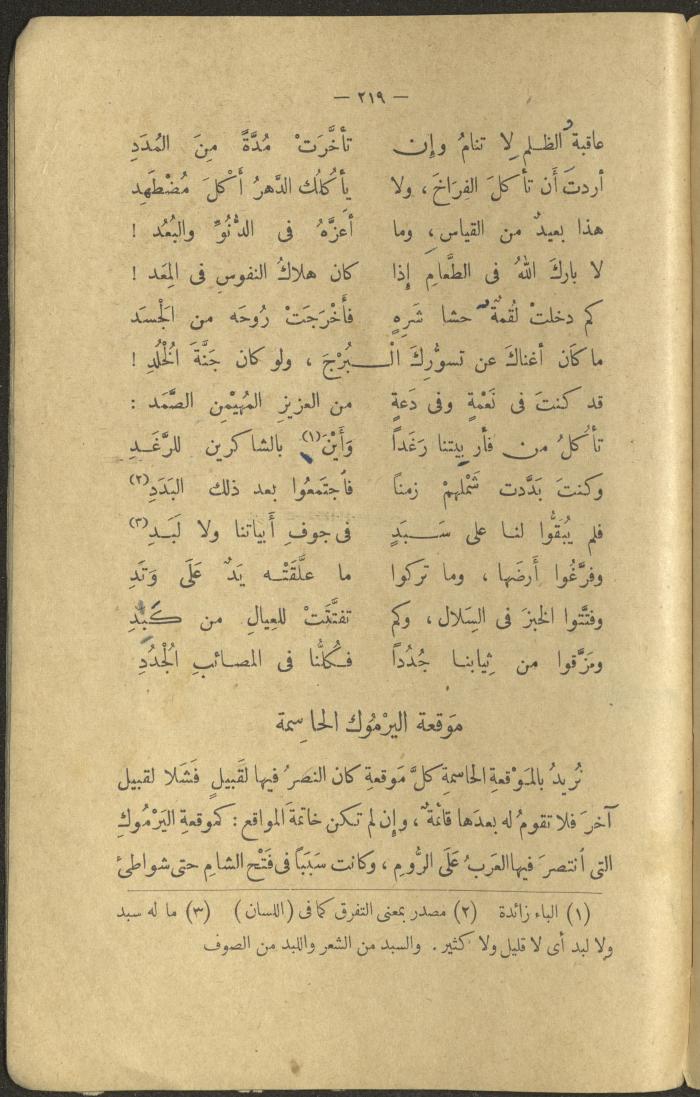 — ٢١٩ —
عاقبةُ الظلمِ لا تنامُ وإن تأخَّرَتْ مُدَّةً مِنَ المُدَدِ
أردتَ أن تأكلَ الفِرَاخَ، ولا يأكُلُك الدَّهرُ أَكْلَ مُضْطَهِدِ
هذا بعيدٌ من القياسِ، وما أَعَزَّهُ فى الدُّنُوِّ والبُعُد !
لا باركَ اللهُ فى الطَّعامِ إِذا كان هلاكُ النفوسِ فى المِعَد !
كم دخلتْ لُقمةٌ حشا شَرِهٍ فأَخْرَجَتْ رُوحَه من الْجَسَد
ما كَان أغناكَ عن تسوُّرِكَ الْبُرْجَ ، ولو كان جَنَّةَ الْخُلْدِ !
قد كنتَ فى نَعْمَةٍ وفى دَعةٍ من العزيزِ المُهَيْمِنِ الصَّمَد :
تأكُلُ من فأرِ بيتنا رَغَداً وَأَيْنَ(١) بالشاكرين للرَّغَدِ
وكنتَ بَدَّدت شَمْلهمْ زمناً فاجتَمعُوا بعد ذلك البَدَدِ(٢)
فلم يُبَقُّوا لنا على سَبَدٍ فى جوفِ أَبياتنا ولا لَبَدِ(٣)
وفرَّغُوا أَرضَها، وما تركوا ما علَّقَتْه يَدٌ عَلَى وَتَدِ
وفتَّتوا الخبزَ فى السِلال، وكم تفتَّتَتْ للعِيالِ من كَبِدِ
ومَزَّقوا من ثِيابنا جُدُداً فكُلُّنا فى المصائبِ الْجُدُدِ
مَوقعة اليرْمُوك الحاسِمة
نُريدُ بالمَوْقعةِ الحاسمةِ كلَّ مَوقعةٍ كان النصرُ فيها لقَبيلٍ فَشَلا لقبيل
آخرَ فلا تقومُ له بعدَها قائمةٌ، وإن لم تكن خاتمةَ المواقع : كموقعةِ اليَرْمُوكِ
التى انتصرَ فيها العَربُ عَلَى الرُّومِ، وكانت سَبَبًا فى فَتْح الشامِ حتى شواطئ
(١) الباء زائدة (٢) مصدر بمعنى التفرق كما فى (اللسان) (٣) ما له سبد
ولا لبد أى لا قليل ولا كثير. والسبد من الشعر واللبد من الصوف